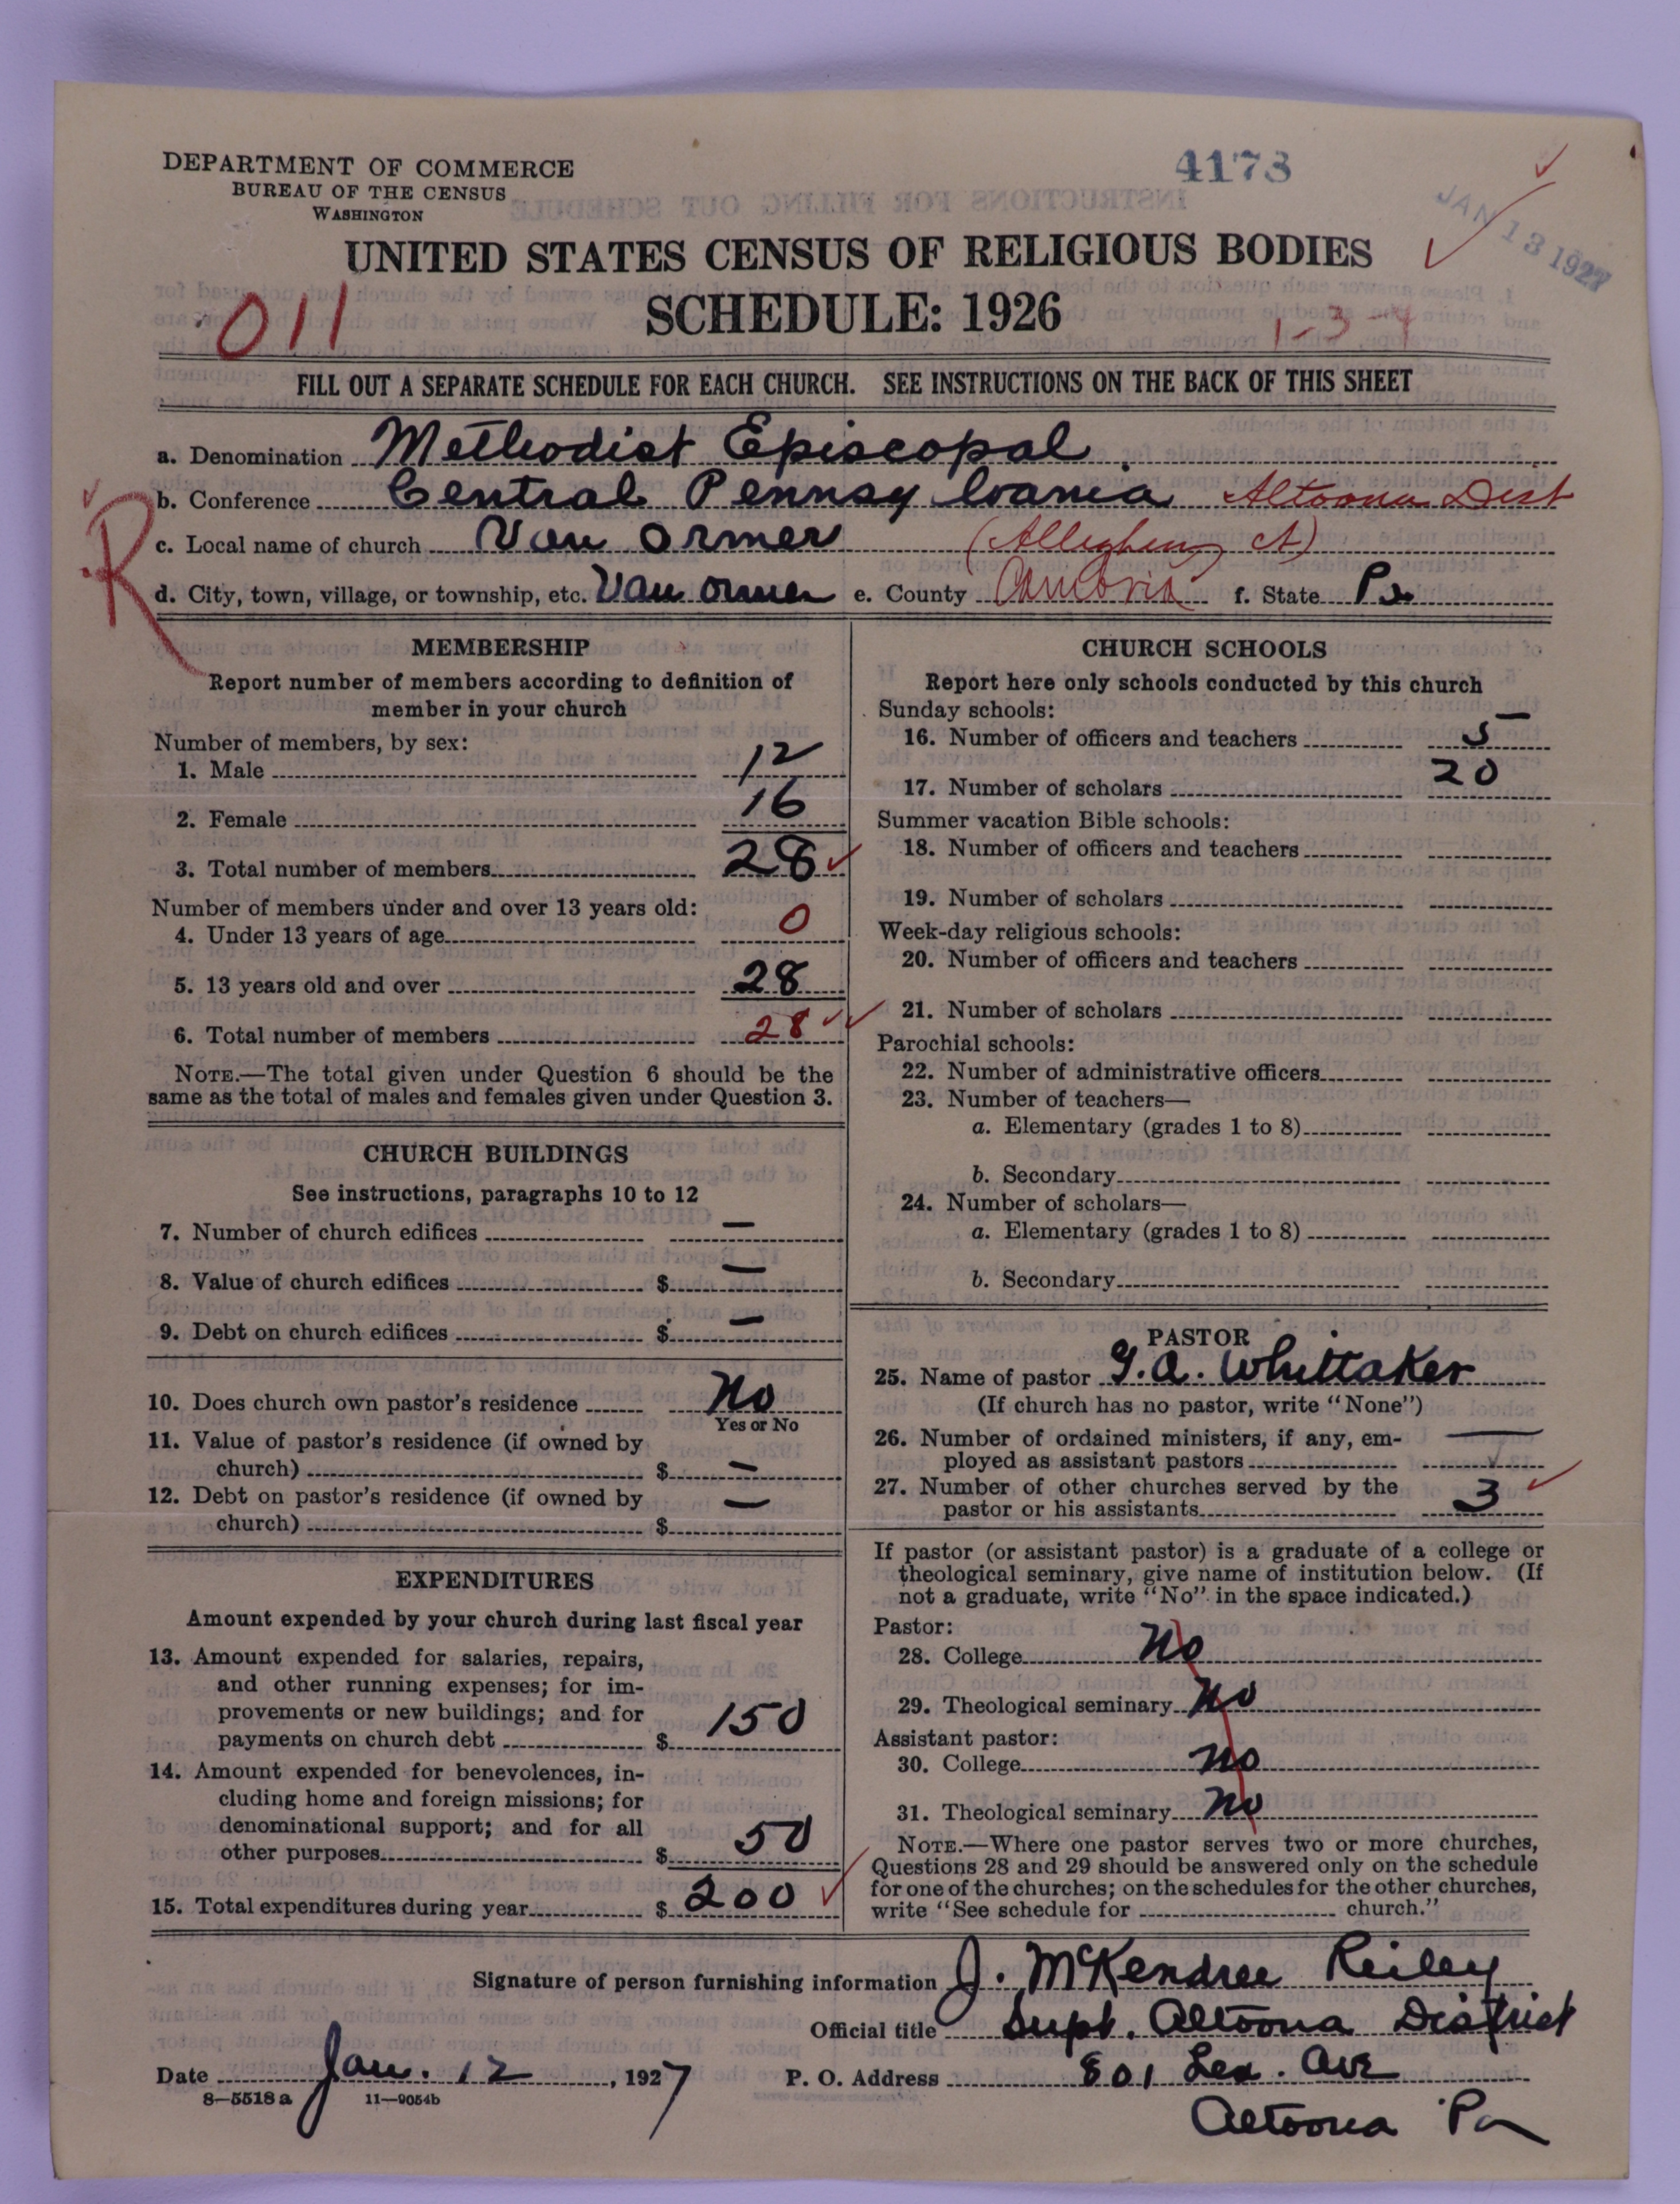 DEPARTMENT OF COMMERCE
BUREAU OF THE CENSUS
WASHINGTON
4173
JAN 13 1927
UNITED STATES CENSUS OF RELIGIOUS BODIES
SCHEDULE: 1926
011
1-3-4
FILL OUT A SEPARATE SCHEDULE FOR EACH CHURCH. SEE INSTRUCTIONS ON THE BACK OF THIS SHEET
a. Denomination Methodist Episcopal
b. Conference Central Pennsylvania Altoona Dist
R
c. Local name of church Van Ormer (Allegheny Ct)
d. City, town, village, or township, etc. Van Ormer e. County Cambria f. State Pa
MEMBERSHIP
Report number of members according to definition of
member in your church
Number of members, by sex:
1. Male 12
2. Female 16
3. Total number of members 28
Number of members under and over 13 years old:
4. Under 13 years of age 0
5. 13 years old and over 28
6. Total number of members 28
NOTE.—The total given under Question 6 should be the
same as the total of males and females given under Question 3.
CHURCH BUILDINGS
See instructions, paragraphs 10 to 12
7. Number of church edifices —
8. Value of church edifices $ —
9. Debt on church edifices $ —
10. Does church own pastor's residence No
Yes or No
11. Value of pastor's residence (if owned by
church) $ —
12. Debt on pastor's residence (if owned by
church) $ —
EXPENDITURES
Amount expended by your church during last fiscal year
13. Amount expended for salaries, repairs,
and other running expenses; for im-
provements or new buildings; and for
payments on church debt $ 150
14. Amount expended for benevolences, in-
cluding home and foreign missions; for
denominational support; and for all
other purposes $ 50
15. Total expenditures during year $ 200
CHURCH SCHOOLS
Report here only schools conducted by this church
Sunday schools:
16. Number of officers and teachers 5
17. Number of scholars 20
Summer vacation Bible schools:
18. Number of officers and teachers
19. Number of scholars
Week-day religious schools:
20. Number of officers and teachers
21. Number of scholars
Parochial schools:
22. Number of administrative officers
23. Number of teachers—
a. Elementary (grades 1 to 8)
b. Secondary
24. Number of scholars—
a. Elementary (grades 1 to 8)
b. Secondary
PASTOR
25. Name of pastor G. A. Whittaker
(If church has no pastor, write "None")
26. Number of ordained ministers, if any, em-
ployed as assistant pastors —
27. Number of other churches served by the
pastor or his assistants 3
If pastor (or assistant pastor) is a graduate of a college or
theological seminary, give name of institution below. (If
not a graduate, write "No" in the space indicated.)
Pastor:
28. College No
29. Theological seminary No
Assistant pastor:
30. College No
31. Theological seminary No
NOTE.—Where one pastor serves two or more churches,
Questions 28 and 29 should be answered only on the schedule
for one of the churches; on the schedules for the other churches,
write "See schedule for church."
Signature of person furnishing information J. McKendree Reiley
Official title Supt. Altoona District
Date Jan. 12, 1927 P. O. Address 801 Lex. Ave
8—5518a 11—9054b
Altoona Pa